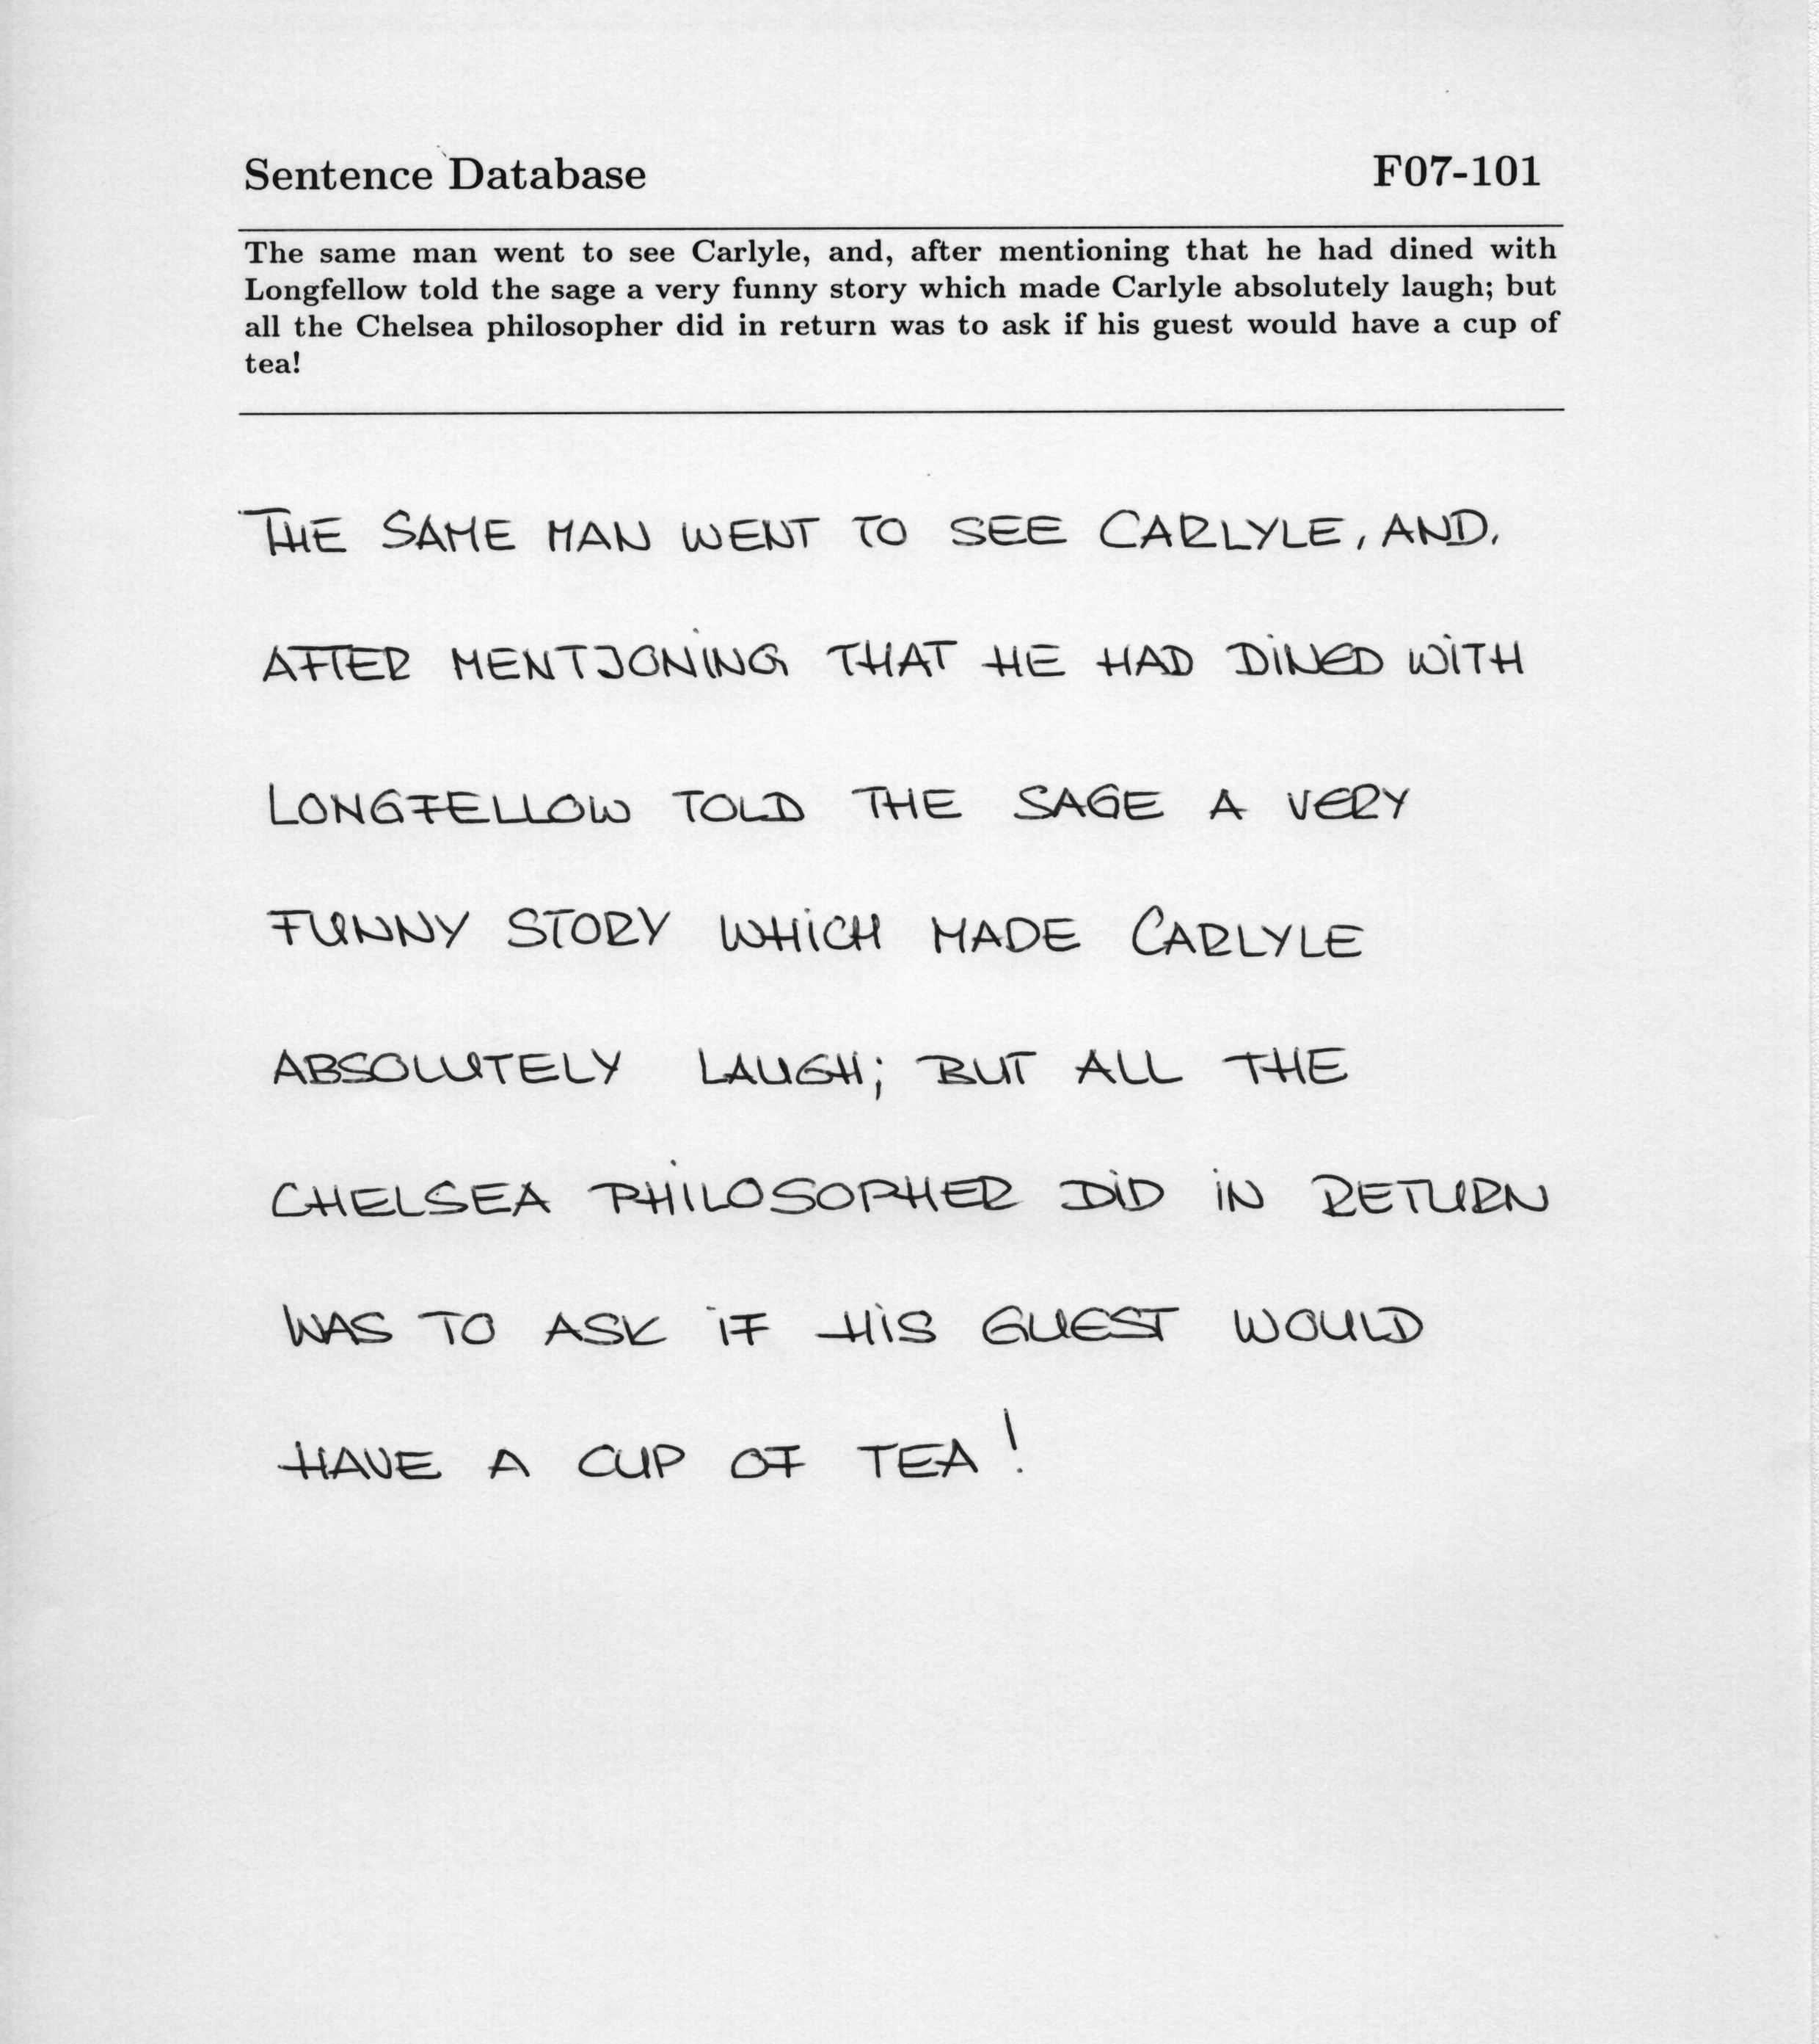 Sentence Database F07-101
The same man went to see Carlyle, and, after mentioning that he had dined with
Longfellow told the sage a very funny story which made Carlyle absolutely laugh; but
all the Chelsea philosopher did in return was to ask if his guest would have a cup of
tea!
THE SAME MAN WENT TO SEE CARLYLE, AND,
AFTER MENTIONING THAT HE HAD DINED WITH
LONGFELLOW TOLD THE SAGE A VERY
FUNNY STORY WHICH MADE CARLYLE
ABSOLUTELY LAUGH; BUT ALL THE
CHELSEA PHILOSOPHER DID IN RETURN
WAS TO ASK IF HIS GUEST WOULD
HAVE A CUP OF TEA!